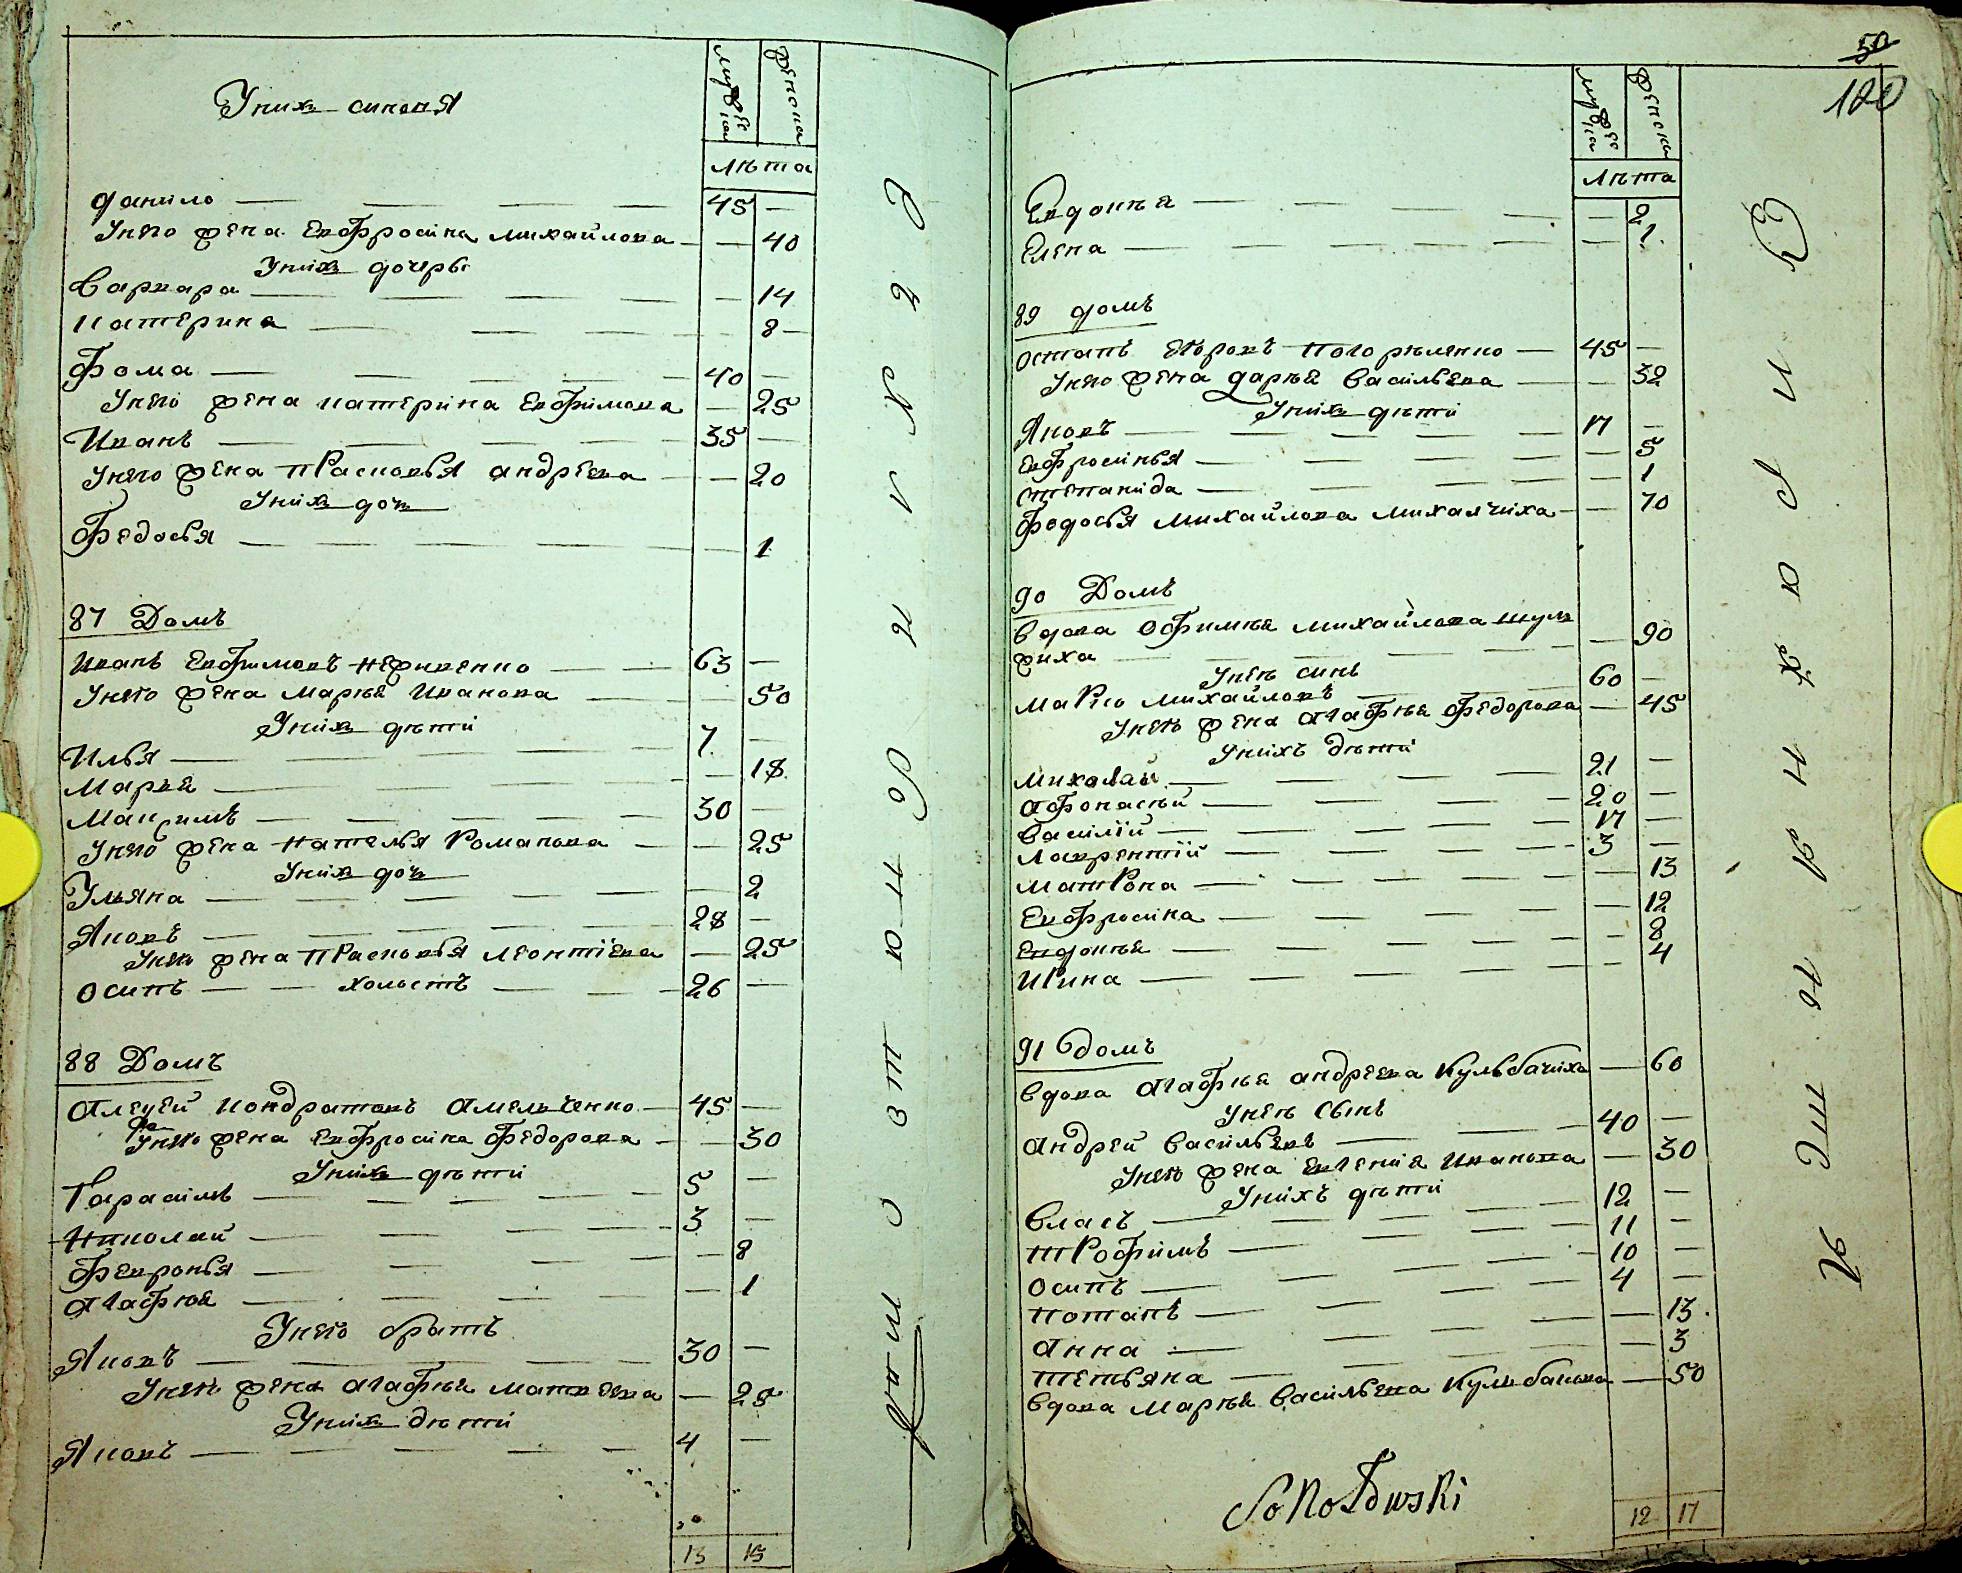 Унихъ синовя
мужеска
женска
лѣта
данило — 45 —
Унего жена Евфросина михайлова — 40
Унихъ дочеры
Варвара — 14
катерина — 8
Фома — 40 —
Унего жена катерина Евфимова — 25
Иванъ — 35 —
Унего жена пРасковья андреева — 20
Унихъ доч
Федосья — 1
87 Домъ
Иванъ Евфимовъ 63 —
Унего жена марья Иванова — 50
Унихъ дѣти
Илья — 7 —
Марья — 18
Максимъ — 30 —
Унего жена нателья Романова — 25
Унихъ доч
Ульяна — 2
Яковъ — 28 —
Унего жена пРасковья леонтіева — 25
осипъ — холостъ — 26 —
88 Домъ
алеѯей кондратовъ амельченко — 45 —
Унего жена Евфросина федорова — 30
Унихъ дѣти
Гарасимъ — 5 —
Николай — 3 —
Февронья — 8
агафья — 1
Унего братъ
Яковъ — 30 —
Унего жена агафья матвеева — 28
Унихъ дѣти
Яковъ — 4 —
13 15
50
120
мужеска
женска
лѣта
Евдокья — 2
Елена — 1
89 домъ
остапъ Егоровъ погорѣленко — 45 —
Унего жена дарья васильева — 32
Унихъ дѣти
Яковъ — 17 —
евфросинья — 5
степанида — 1
федосья михайлова михалчиха — 70
90 Домъ
вдова офимья михайлова шул — 90
жиха
Унеи синъ
маРко михайловъ — 60 —
Унего жена агафья федорова — 45
Унихъ дѣти
михалай — 21 —
афонасей — 20 —
василій — 17 —
лаврентій — 3 —
матРона — 13
Евфросина — 12
Евдокья — 8
иРина — 4
91 домъ
вдова агафья андреева Кульбачиха — 60
Унеи сынъ
андрей васильевъ — 40 —
Унего жена евгенія иванова — 30
Унихъ дѣти
власъ — 12 —
тРофимъ — 11 —
осипъ — 10 —
потапъ — 4 —
анна — 13
тетьяна — 3
вдова марья васильева Кульбакова — 50
Sokołowski
12 17